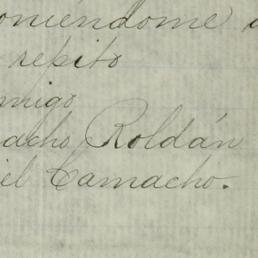 oniéndome a
repito
amigo
acho Roldán
el Camacho.